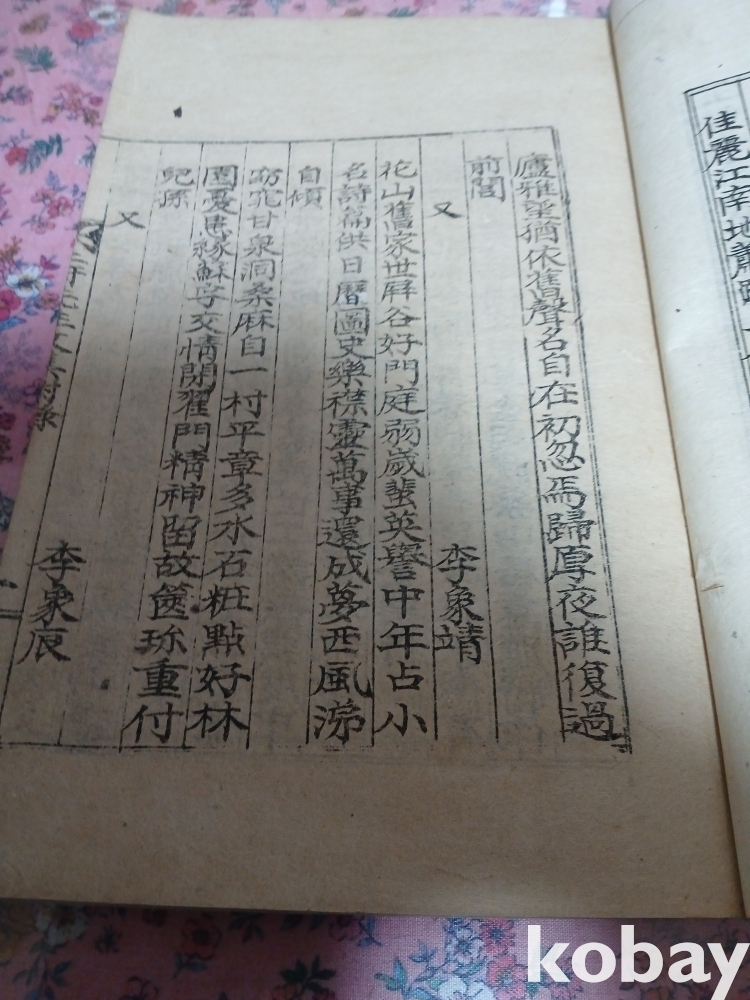 佳麗江南地
廬雅望猶依舊聲名自在初忽焉歸厚夜誰復過
前閭
又
李象靖
花山舊家世屛谷好門庭弱歲蜚英譽中年占小
名詩篇供日曆圖史樂襟靈萬事還成夢西風涕
自傾
窈窕甘泉洞桑麻自一村平章多水石粧點好林
園憂患緣蘇字交情閱翟門精神留故篋珍重付
兒孫
又
李象辰
kobay